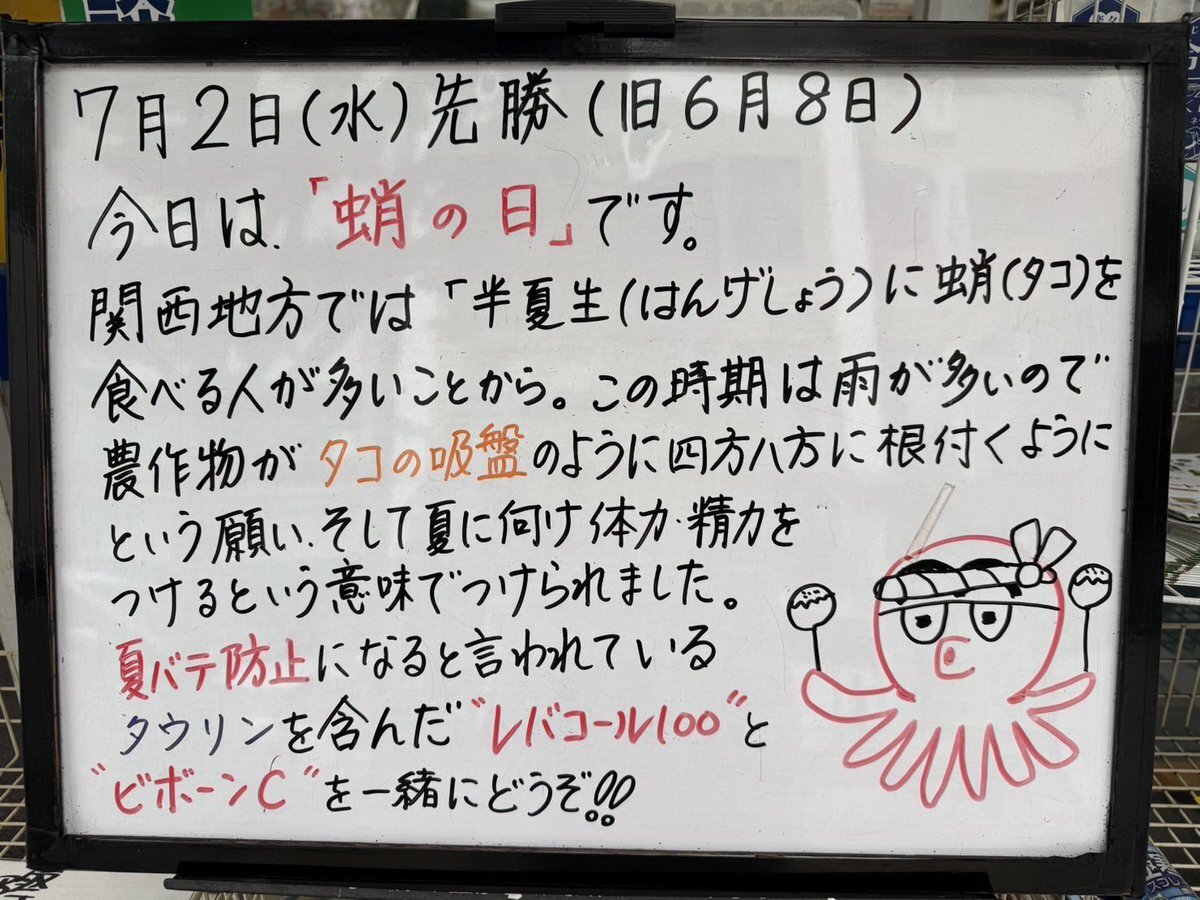 7月2日(水)先勝(旧6月8日)
今日は、「蛸の日」です。
関西地方では「半夏生(はんげしょう)に蛸(タコ)を
食べる人が多いことから。この時期は雨が多いので
農作物がタコの吸盤のように四方八方に根付くように
という願い、そして夏に向け体力・精力を
つけるという意味でつけられました。
夏バテ防止になると言われている
タウリンを含んだ"レバコール100"と
"ビボーンC"を一緒にどうぞ!!